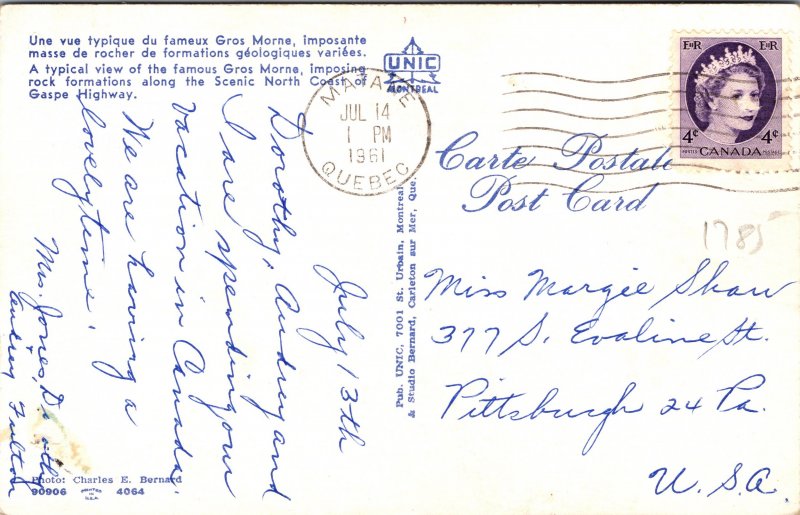 Une vue typique du fameux Gros Morne, imposante
masse de rocher de formations géologiques variées.
A typical view of the famous Gros Morne, imposing
rock formations along the Scenic North Coast of
Gaspe Highway.
UNIC
MONTREAL
MATANE
JUL 14
1 PM
1961
QUEBEC
EIIR EIIR
4¢ 4¢
POSTES CANADA POSTAGE
Carte Postale
Post Card
1785
July 13th
Dorothy, Audrey and
I are spending our
vacation in Canada.
We are having a
lovely time.
Mrs. Jones, Dorothy
Audrey Fulton
Pub. UNIC, 7001 St. Urbain, Montreal
& Studio Bernard, Carleton sur Mer, Que.
Miss Margie Shaw
377 S. Evaline St.
Pittsburgh 24 Pa.
U.S.A
Photo: Charles E. Bernard
90906 PRINTED IN U.S.A. 4064